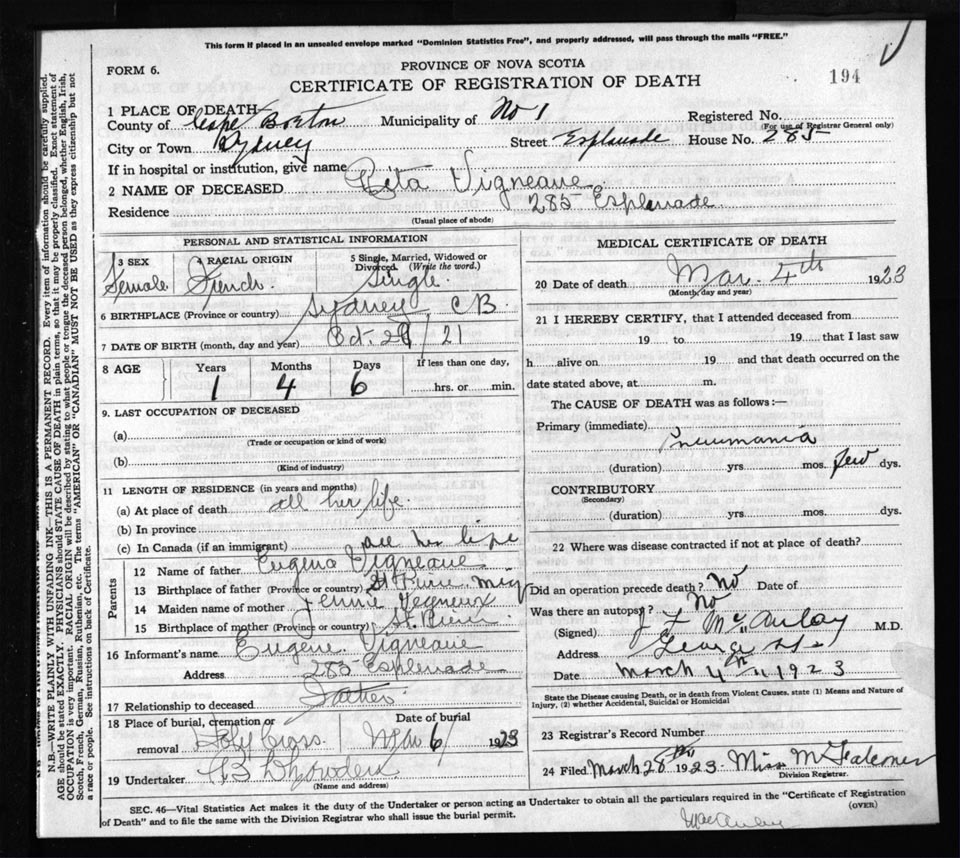 This form if placed in an unsealed envelope marked "Dominion Statistics Free", and properly addressed, will pass through the mails "FREE."
FORM 6.
PROVINCE OF NOVA SCOTIA
CERTIFICATE OF REGISTRATION OF DEATH
194
1 PLACE OF DEATH
County of Cape Breton Municipality of No 1 Registered No.
(For use of Registrar General only)
City or Town Sydney Street Esplanade House No. 285
If in hospital or institution, give name
2 NAME OF DECEASED Rita Vigneau
Residence 285 Esplanade
(Usual place of abode)
PERSONAL AND STATISTICAL INFORMATION
3 SEX Female
4 RACIAL ORIGIN French
5 Single, Married, Widowed or Divorced. (Write the word.) Single
6 BIRTHPLACE (Province or country) Sydney C B
7 DATE OF BIRTH (month, day and year) Oct. 29 / 21
8 AGE Years 1 Months 4 Days 6 If less than one day, hrs. or min.
9. LAST OCCUPATION OF DECEASED
(a)
(Trade or occupation or kind of work)
(b)
(Kind of industry)
11 LENGTH OF RESIDENCE (in years and months)
(a) At place of death all her life
(b) In province
(c) In Canada (if an immigrant) all her life
Parents
12 Name of father Eugene Vigneau
13 Birthplace of father (Province or country) St Pierre Miq
14 Maiden name of mother Jennie
15 Birthplace of mother (Province or country) St. Pierre
16 Informant's name Eugene Vigneau
Address 285 Esplanade
17 Relationship to deceased Father
18 Place of burial, cremation or removal Holy Cross
Date of burial Mar 6 / 1923
19 Undertaker
(Name and address)
MEDICAL CERTIFICATE OF DEATH
20 Date of death Mar. 4th 1923
(Month, day and year)
21 I HEREBY CERTIFY, that I attended deceased from
19 to 19 that I last saw
h alive on 19 and that death occurred on the
date stated above, at m.
The CAUSE OF DEATH was as follows:—
Primary (immediate) Pneumania
(duration) yrs. mos. few dys.
CONTRIBUTORY
(Secondary)
(duration) yrs. mos. dys.
22 Where was disease contracted if not at place of death?
Did an operation precede death? No Date of
Was there an autopsy? No
(Signed) J F McAulay M.D.
Address George St
Date March 4th 1923
State the Disease causing Death, or in death from Violent Causes, state (1) Means and Nature of
Injury, (2) whether Accidental, Suicidal or Homicidal
23 Registrar's Record Number
24 Filed March 28th 1923 Miss M Falconer
Division Registrar.
SEC. 46—Vital Statistics Act makes it the duty of the Undertaker or person acting as Undertaker to obtain all the particulars required in the "Certificate of Registration
of Death" and to file the same with the Division Registrar who shall issue the burial permit.
(OVER)
MacAulay
N.B.—WRITE PLAINLY WITH UNFADING INK—THIS IS A PERMANENT RECORD. Every item of information should be carefully supplied.
AGE should be stated EXACTLY. PHYSICIANS should STATE CAUSE OF DEATH in plain terms, so that it may be properly classified. Exact statement of
OCCUPATION is very important. RACIAL ORIGIN will be described by stating to what people or tongue the deceased person belonged, whether English, Irish,
Scotch, French, German, Russian, Ruthenian, etc. The terms "AMERICAN" OR "CANADIAN" MUST NOT BE USED as they express citizenship but not
a race or people. See instructions on back of Certificate.